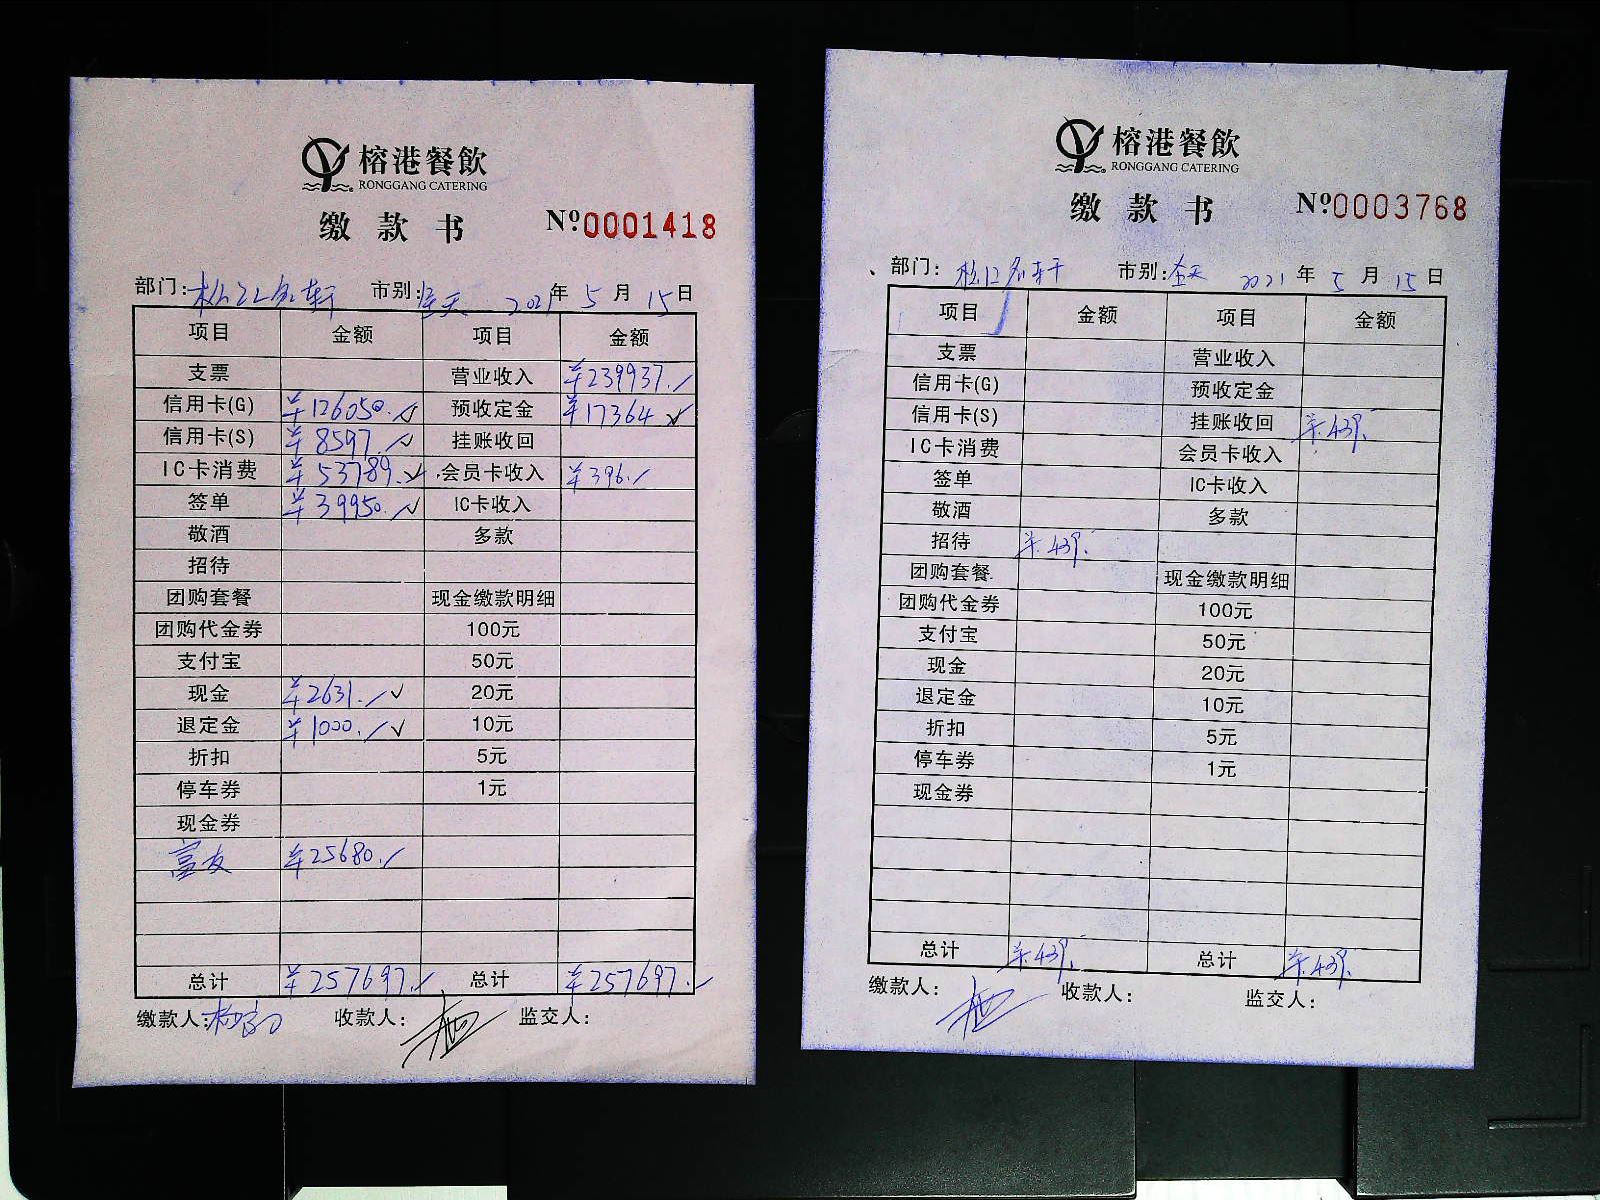 榕港餐飲
RONGGANG CATERING
缴款书 №0001418
部门:松江名轩 市别:全天 2021年5月15日
项目 金额 项目 金额
支票 营业收入 ¥239937.
信用卡(G) ¥126050. 预收定金 ¥17364
信用卡(S) ¥8597. 挂账收回
IC卡消费 ¥53789. 会员卡收入 ¥396.
签单 ¥39950. IC卡收入
敬酒 多款
招待
团购套餐 现金缴款明细
团购代金券 100元
支付宝 50元
现金 ¥2631. 20元
退定金 ¥1000. 10元
折扣 5元
停车券 1元
现金券
富友 ¥25680.
总计 ¥257697. 总计 ¥257697.
缴款人: 收款人: 监交人:
榕港餐飲
RONGGANG CATERING
缴款书 №0003768
部门:松江名轩 市别:全天 2021年5月15日
项目 金额 项目 金额
支票 营业收入
信用卡(G) 预收定金
信用卡(S) 挂账收回 ¥439.
IC卡消费 会员卡收入
签单 IC卡收入
敬酒 多款
招待 ¥439.
团购套餐 现金缴款明细
团购代金券 100元
支付宝 50元
现金 20元
退定金 10元
折扣 5元
停车券 1元
现金券
总计 ¥439. 总计 ¥439.
缴款人: 收款人: 监交人: